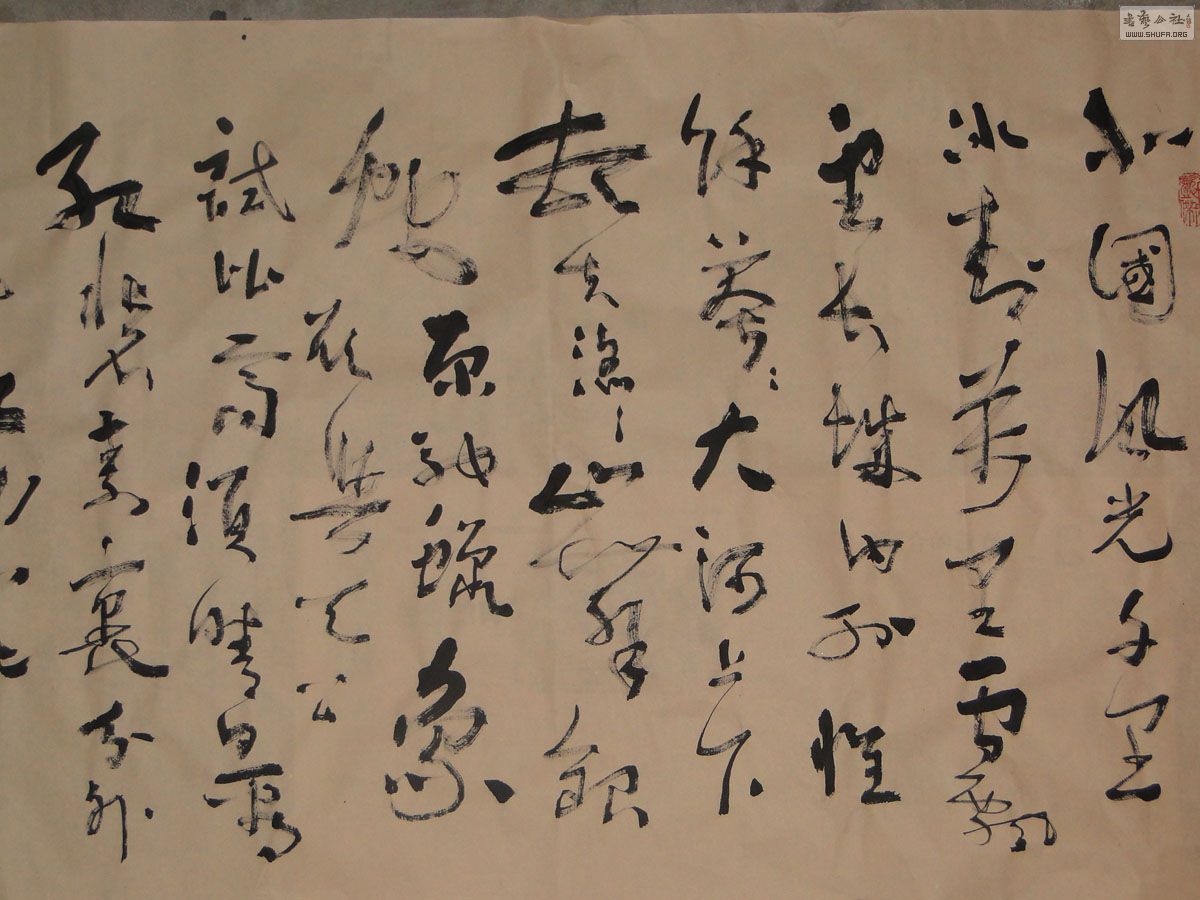 北國風光千里
冰封萬里雪飄
望長城內外惟
餘莽〻大河上下
頓失滔〻山舞銀
蛇原馳蠟象
欲與天公
試比高須晴日看
紅裝素裹分外
書藝公社
WWW.SHUFA.ORG